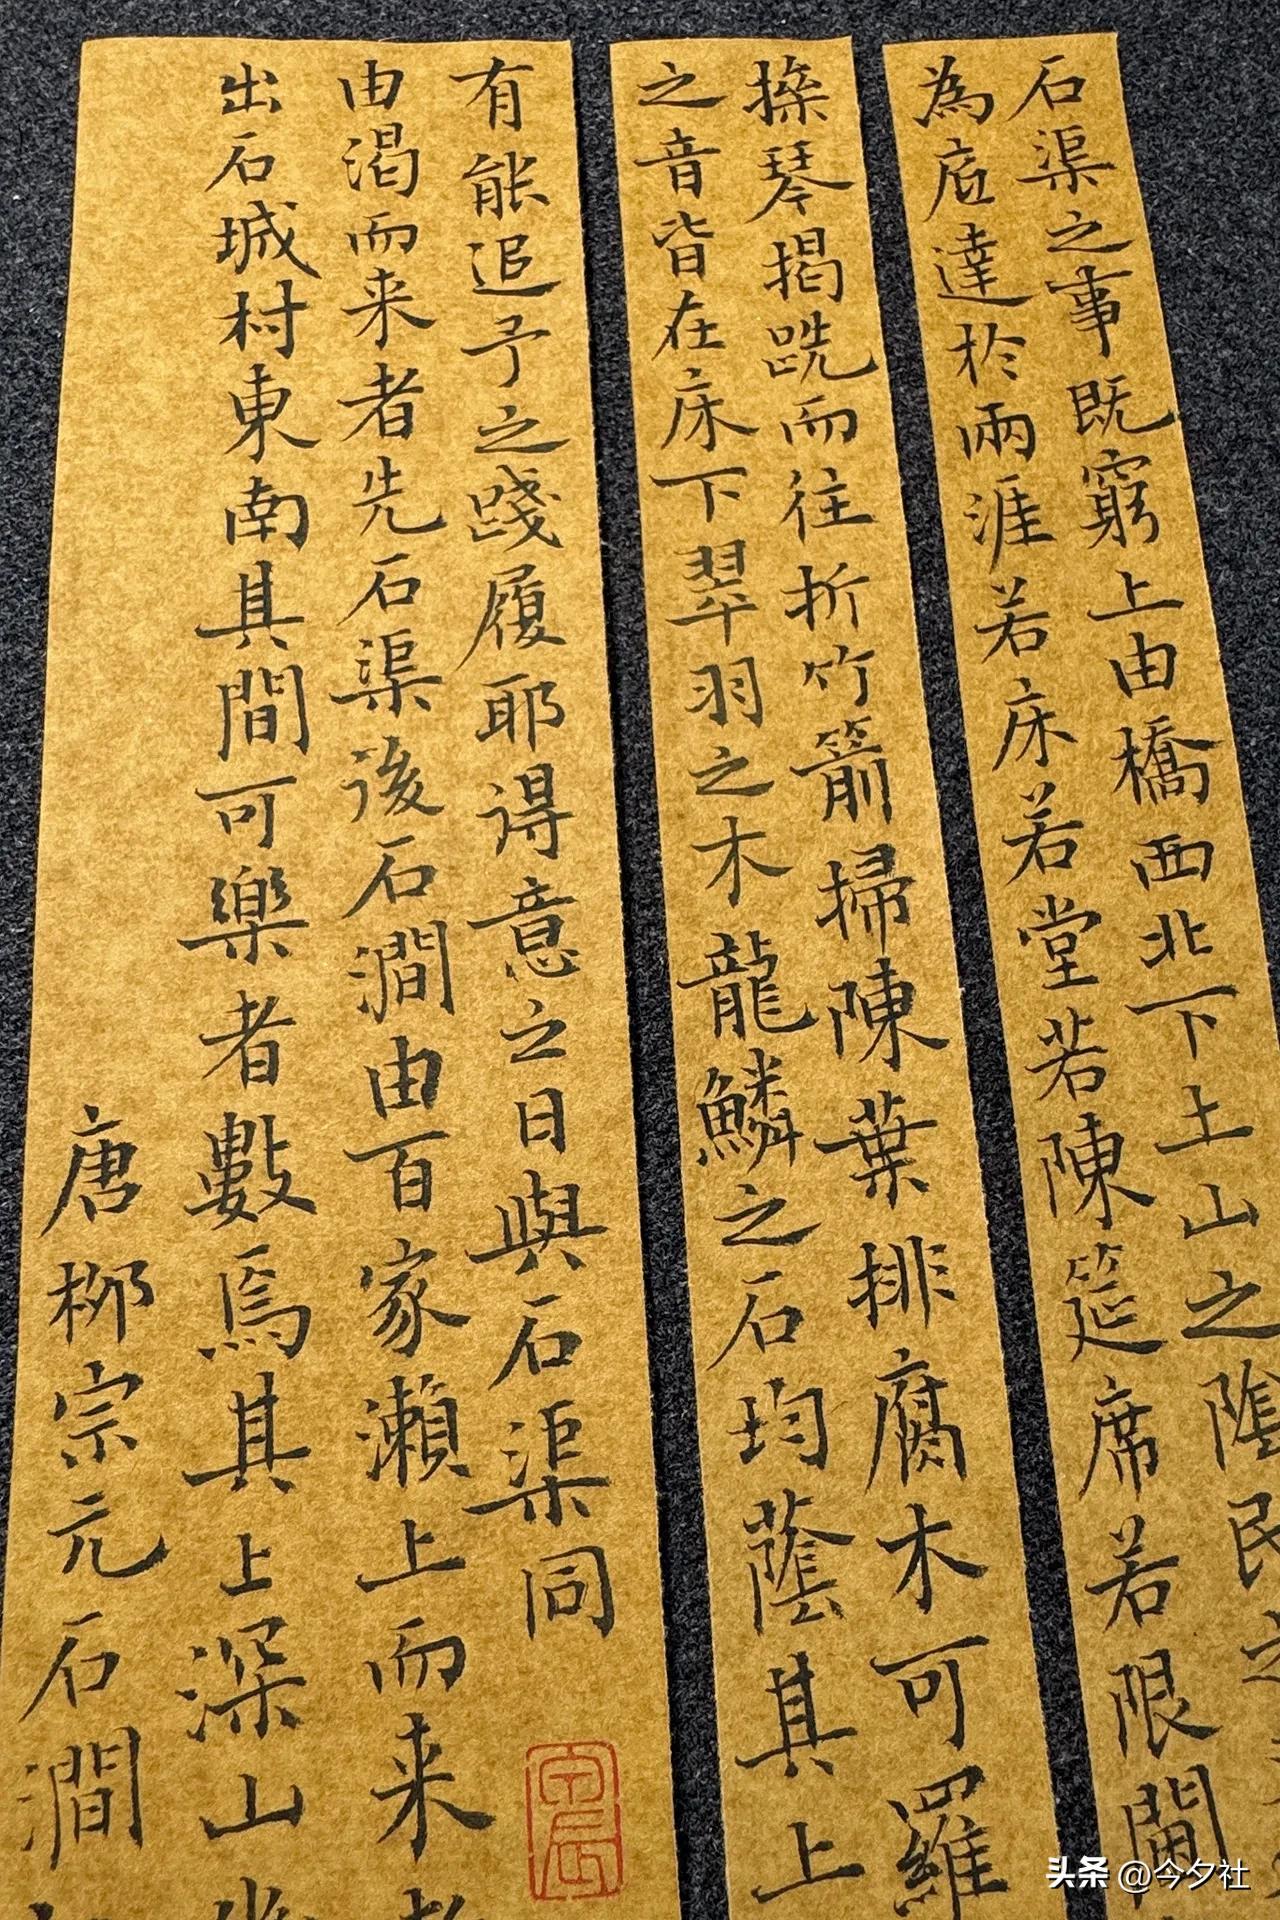 石渠之事既窮上由橋西北下土山之陰民之
為底達於兩涯若床若堂若陳筵席若限閫
操琴揭跣而往折竹箭掃陳葉排腐木可羅
之音皆在床下翠羽之木龍鱗之石均蔭其上
有能追予之踐履耶得意之日與石渠同
由渴而来者先石渠後石澗由百家瀨上而来
出石城村東南其間可樂者數焉其上深山
唐柳宗元石澗
头条 @今夕社